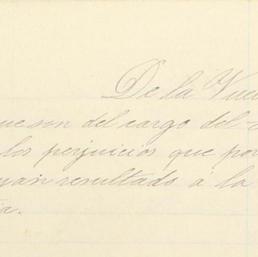 De la Vue
ue son del cargo del
los perjuicios que por
yan resultado á la
ia.